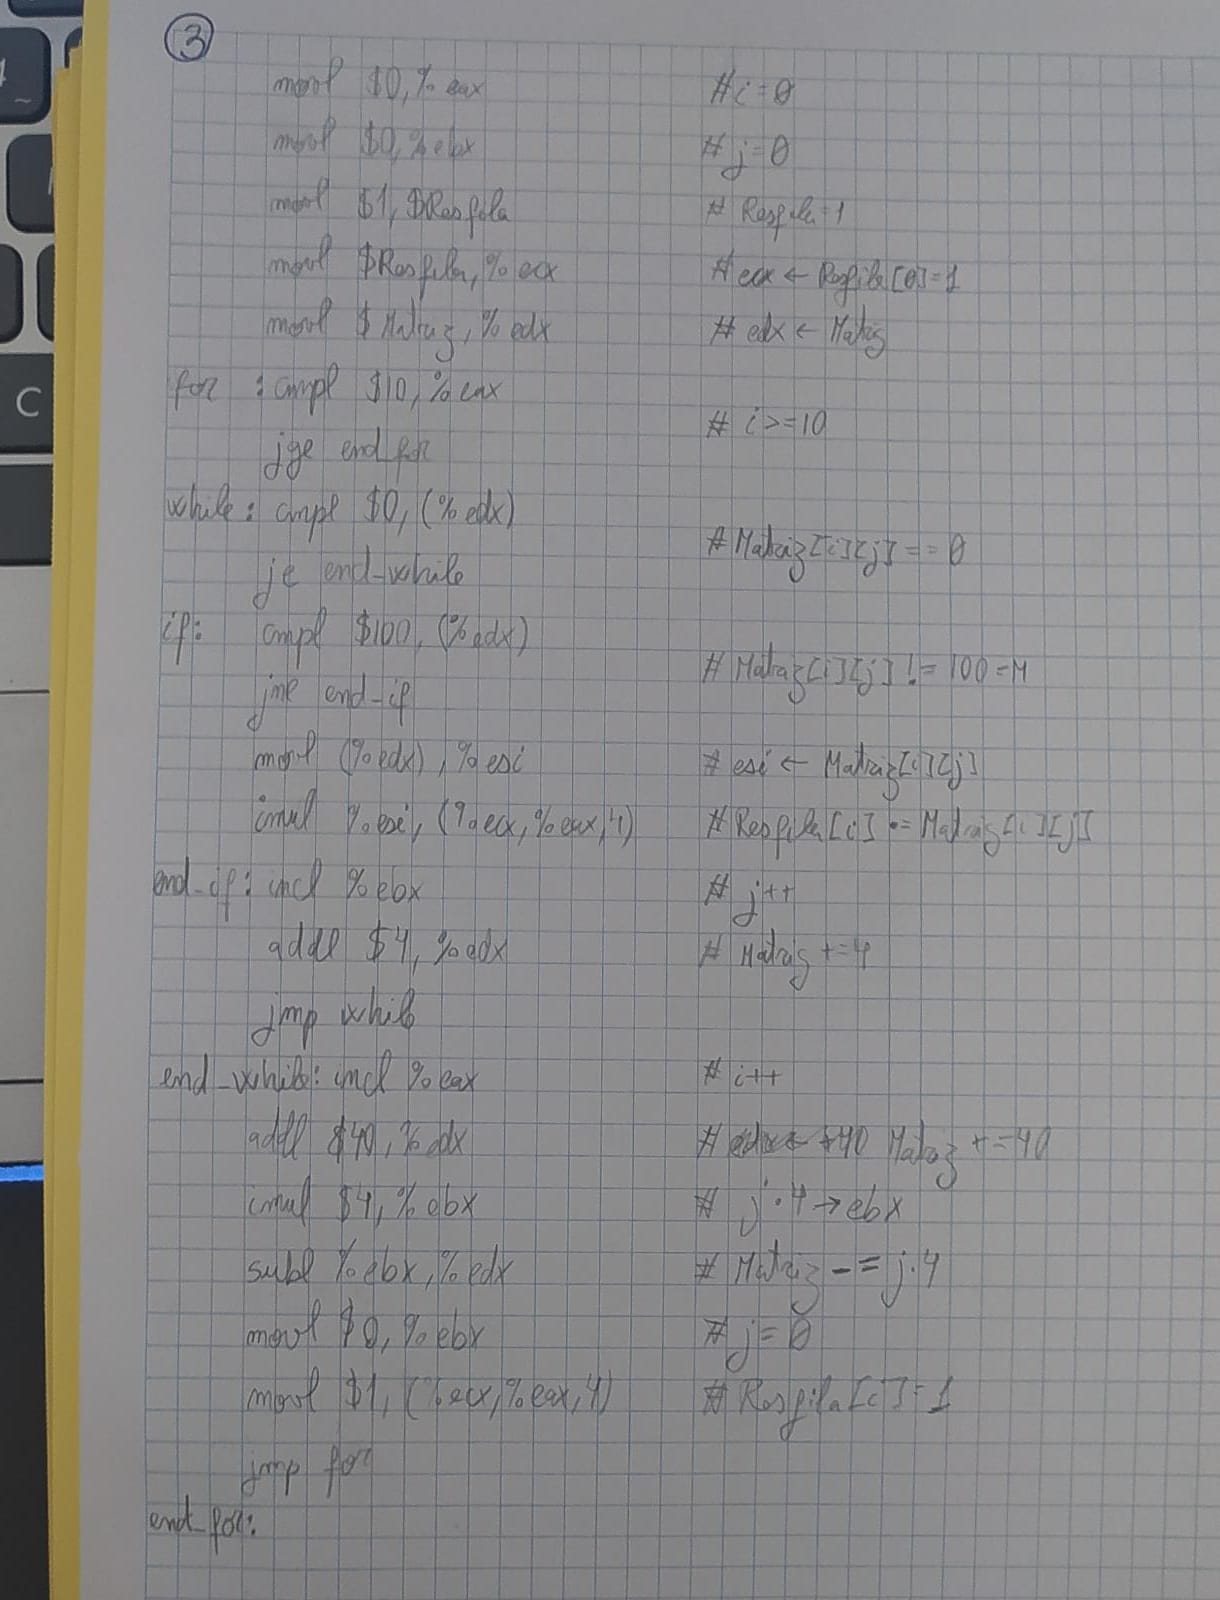 3
movl $0, %eax #i=0
movl $0, %ebx # j=0
movl $1, $Resfila # Resfila=1
movl $Resfila, %ecx # ecx ← Resfila[0]=1
movl $Matriz, %edx # edx ← Matriz
for : cmpl $10, %eax
# i>=10
jge end_for
while: cmpl $0, (%edx)
# Matriz[i][j]==0
je end-while
if: cmpl $100, (%edx)
# Matriz[i][j] != 100=M
jne end-if
movl (%edx), %esi # esi ← Matriz[i][j]
imul %esi, (%ecx, %eax, 4) # Resfila[i] *= Matriz[i][j]
end-if: incl %ebx # j++
addl $4, %edx # Matriz +=4
jmp while
end-while: incl %eax # i++
addl $40, %edx # edx ← +40 Matriz +=40
imul $4, %ebx # j·4→ebx
subl %ebx, %edx # Matriz -= j·4
movl $0, %ebx # j=0
movl $1, (%ecx, %eax, 4) # Resfila[i]=1
jmp for
end_for:
C